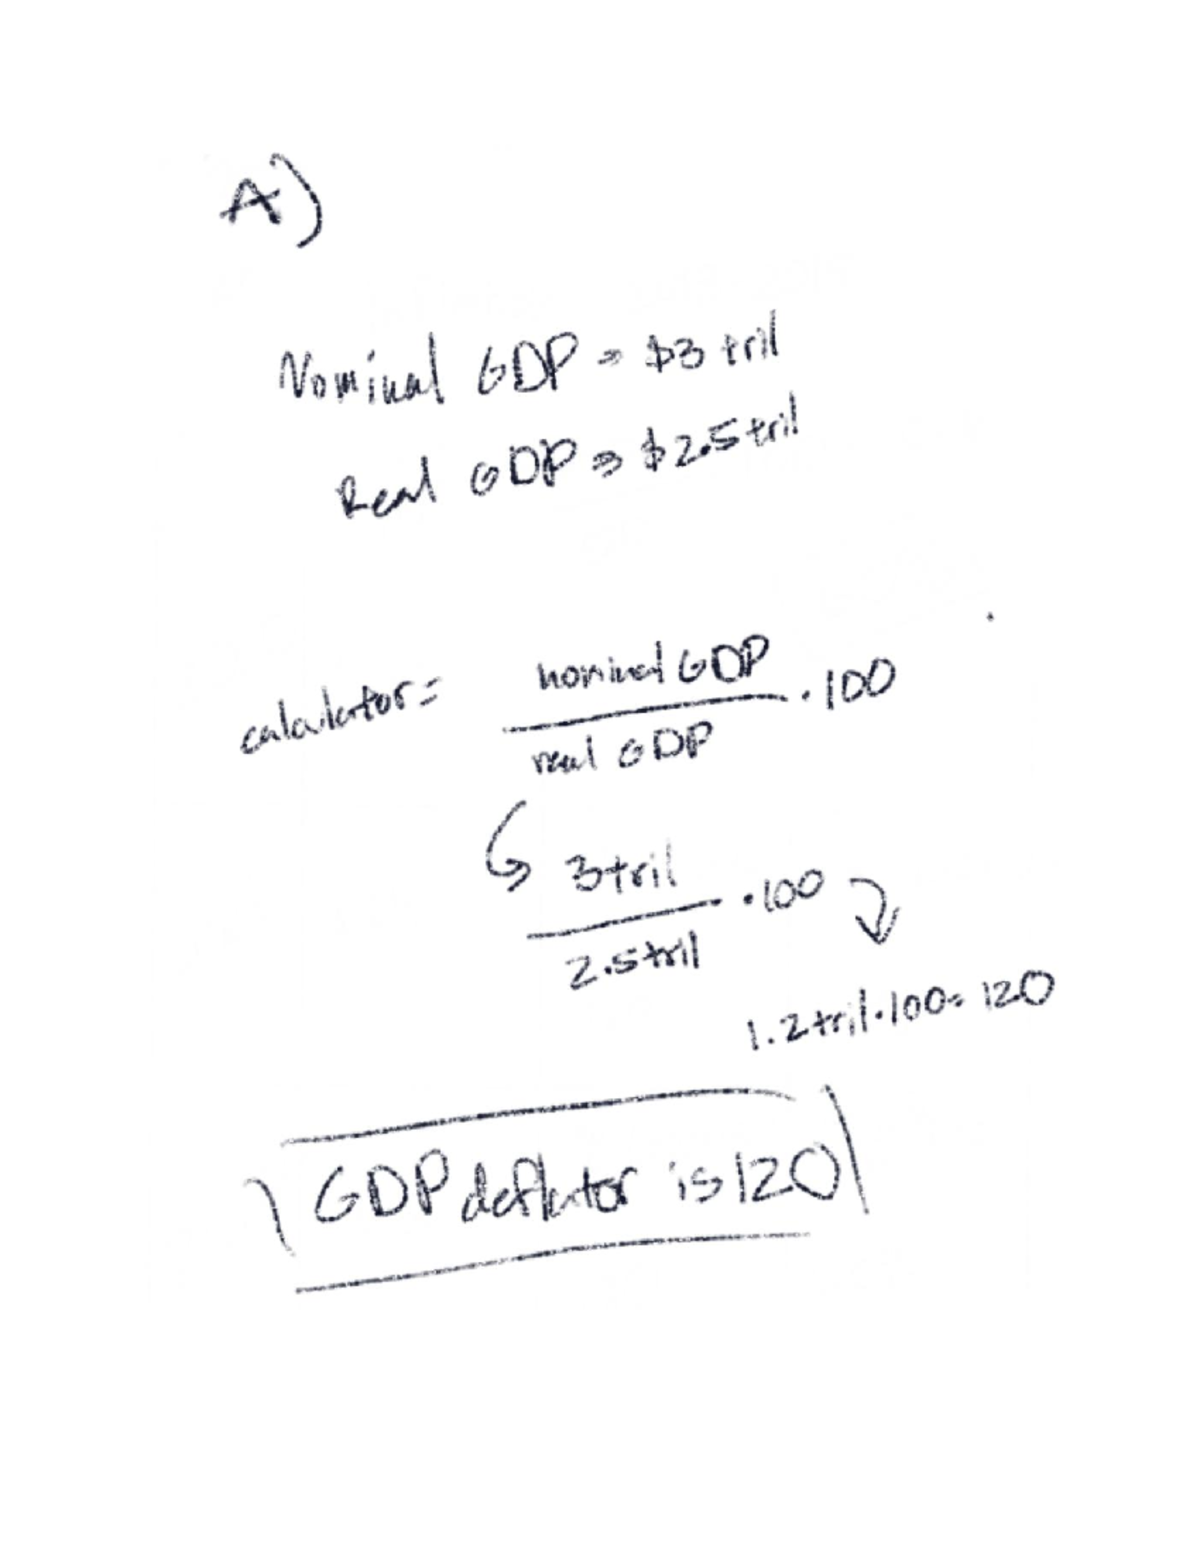 A)
Nominal GDP = $3 tril
Real GDP = $2.5 tril
calculator = nominal GDP / real GDP · 100
3 tril / 2.5 tril · 100
1.2 tril · 100 = 120
GDP deflator is 120